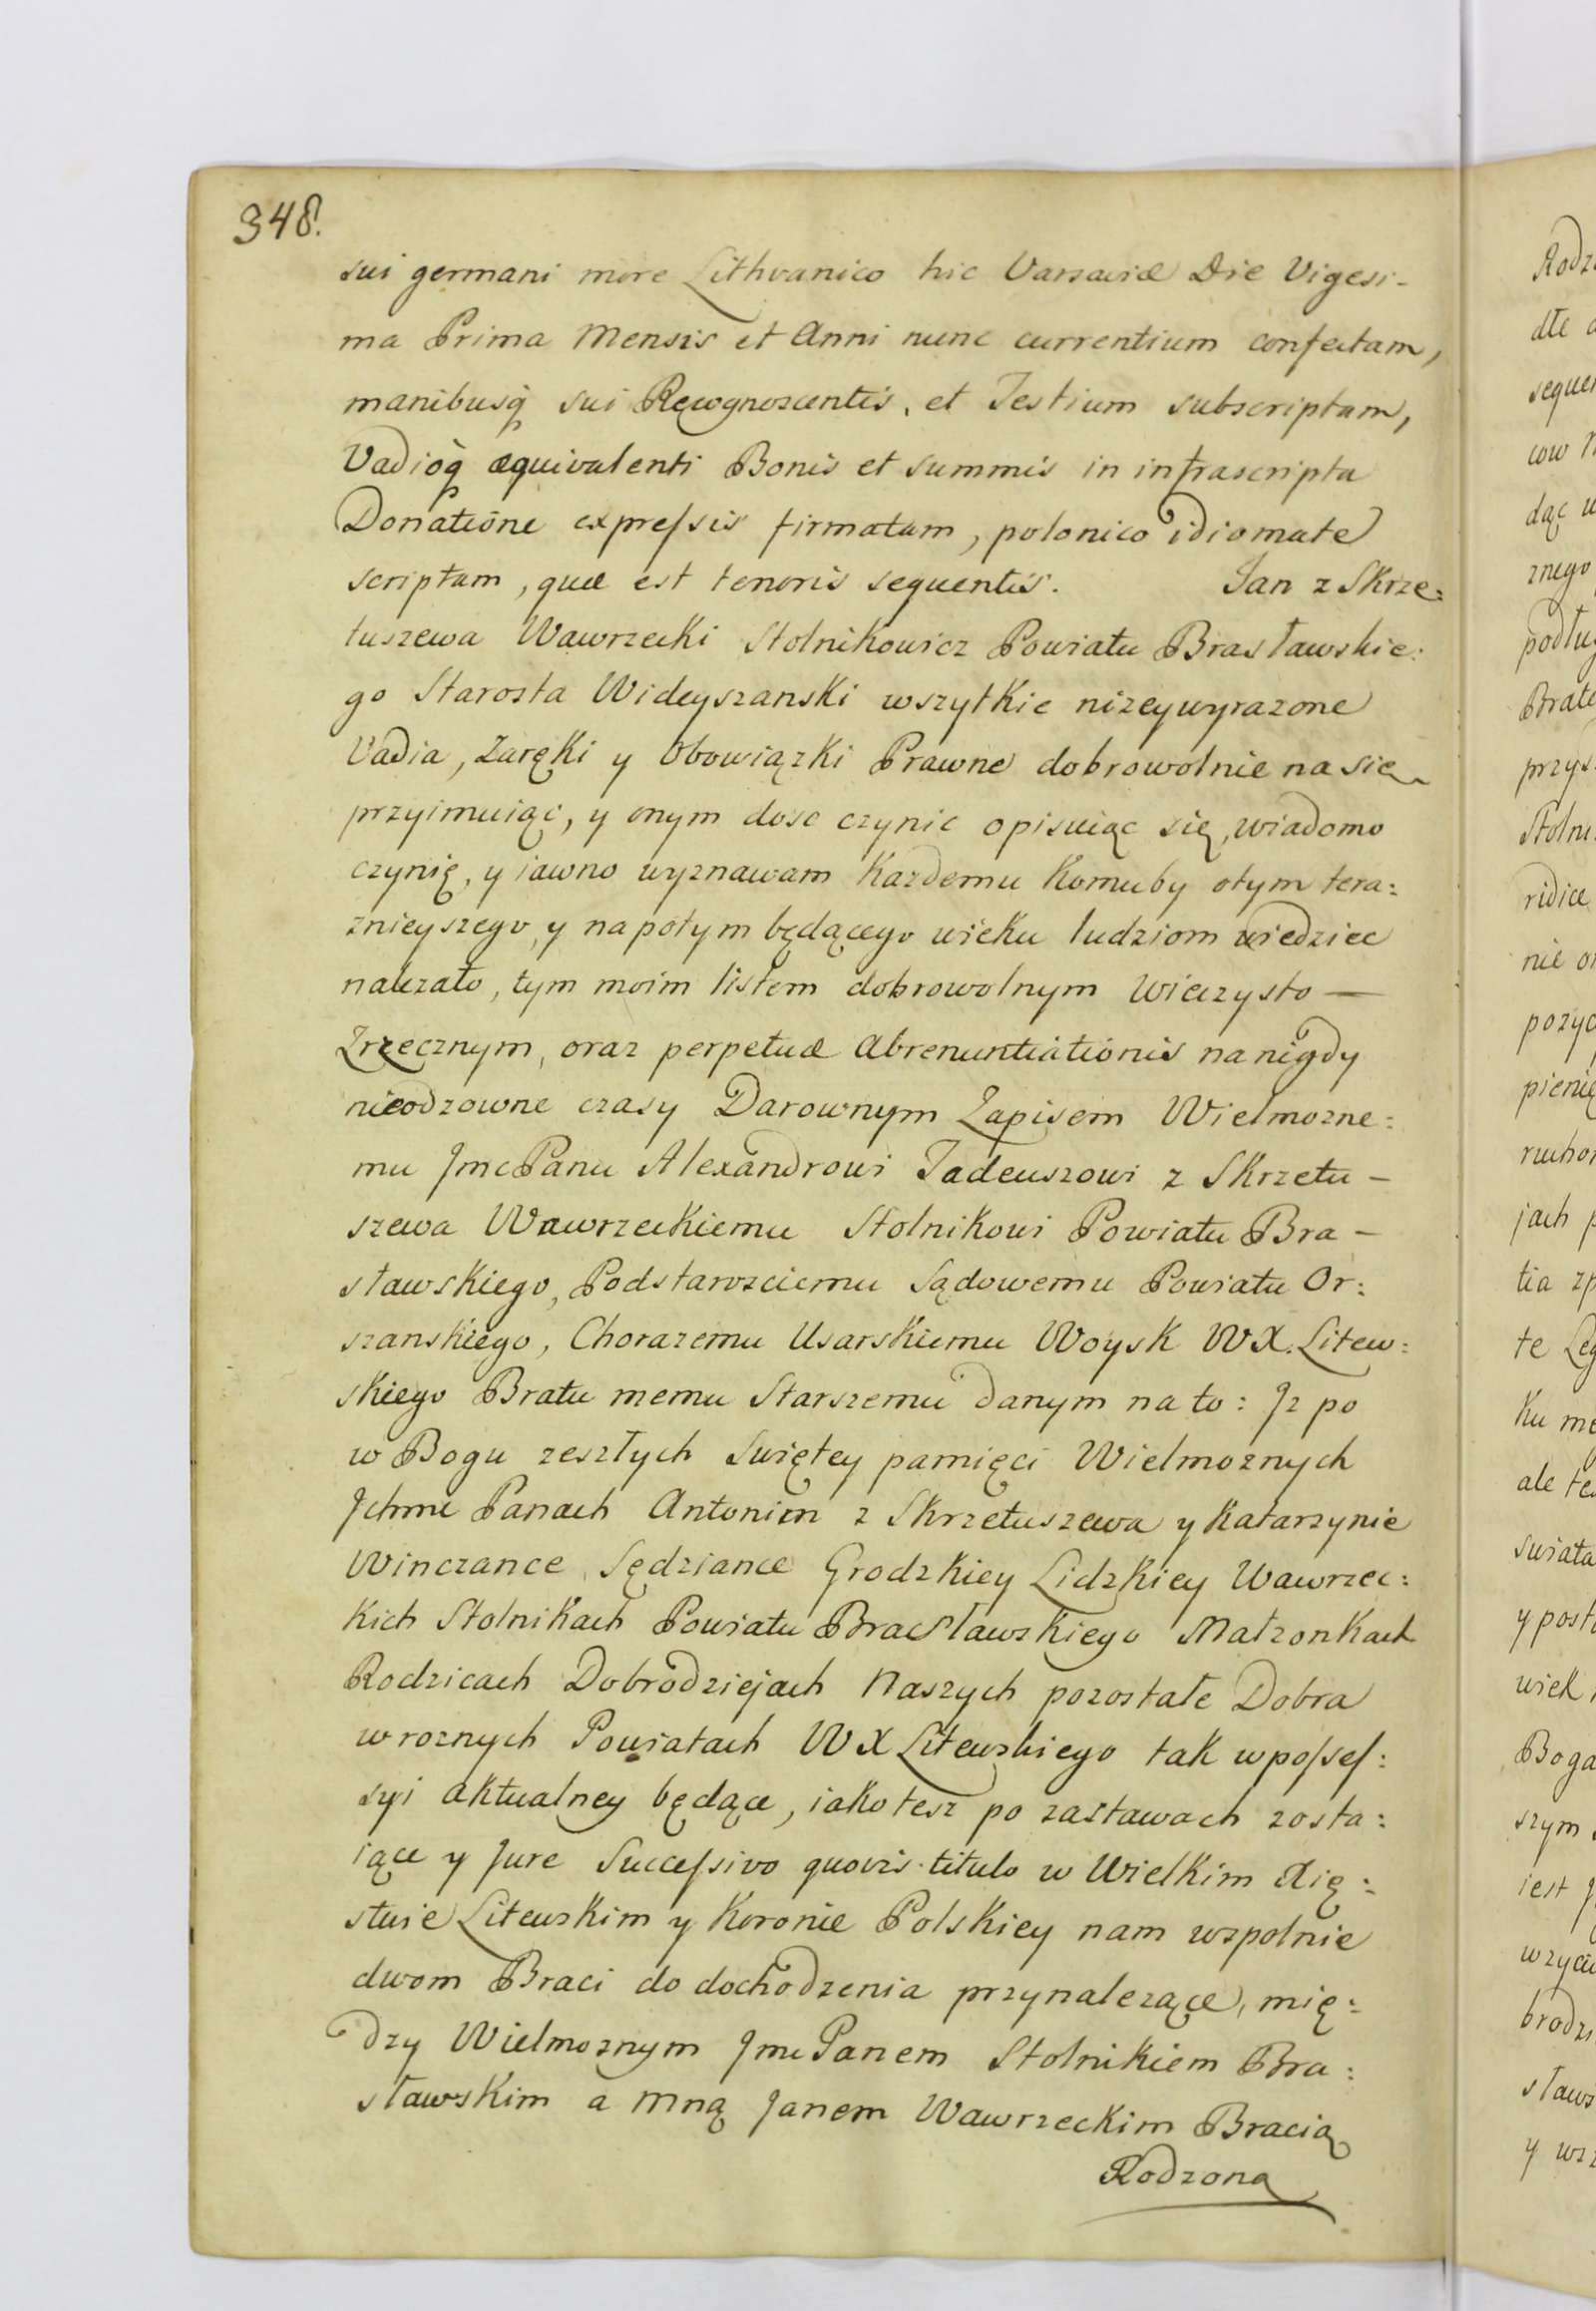 348.
sui germani more Lithvanico hic Varsaviæ Die Vigesi-
ma Prima Mensis et Anni nunc currentium confectam,
manibusq̀ sui Recognoscentis, et Testium subscriptam,
Vadioq̀ æquivalenti Bonis et summis in infrascripta
Donatione expreſsis firmatam, polonico idiomate
scriptam, quæ est tenoris sequentis. Jan z Skrze:
tuszewa Wawrzecki Stolnikowicz Powiatu Brasławskie:
go Starosta Wideyszanski wszytkie nizeywyrazone
Vadia, Zaręki y Obowiązki Prawne dobrowolnie na się
przyimuiąc, y onym dosc czynic opisuiąc się, wiadomo
czynię, y iawno wyznawam Kazdemu Komuby otym tera:
znieyszego, y napotym będącego wieku ludziom wiedziec
nalezało, tym moim listem dobrowolnym Wieczysto —
Zrzecznym, oraz perpetuæ Abrenuntiationis na nigdy
nieodzowne czasy Darownym Zapisem Wielmozne:
mu Jmc Panu Alexandrowi Tadeuszowi z Skrzetu —
szewa Wawrzeckiemu Stolnikowi Powiatu Bra —
sławskiego, Podstarosciemu Sądowemu Powiatu Or:
szanskiego, Chorazemu Usarskiemu Woysk WX. Litew:
skiego Bratu memu Starszemu danym na to: Jz po
w Bogu zeszłych Swiętey pamięci Wielmoznych
Jchmc Panach Antonim z Skrzetuszewa y Katarzynie
Winczance Sędziance Grodzkiey Lidzkiey Wawrzec:
kich Stolnikach Powiatu Bracsławskiego Małzonkach
Rodzicach Dobrodziejach Naszych pozostałe Dobra
w roznych Powiatach WX Litewskiego tak w poſseſ:
syi aktualney będące, iako tesz po zastawach zosta:
iące y Jure Succeſsivo quovis titulo w Wielkim Xię:
stwie Litewskim y Koronie Polskiey nam wspolnie
dwom Braci do dochodzenia przynalezące, mię:
dzy Wielmoznym Jmc Panem Stolnikiem Bra:
sławskim a Mną Janem Wawrzeckim Bracią
Rodzoną